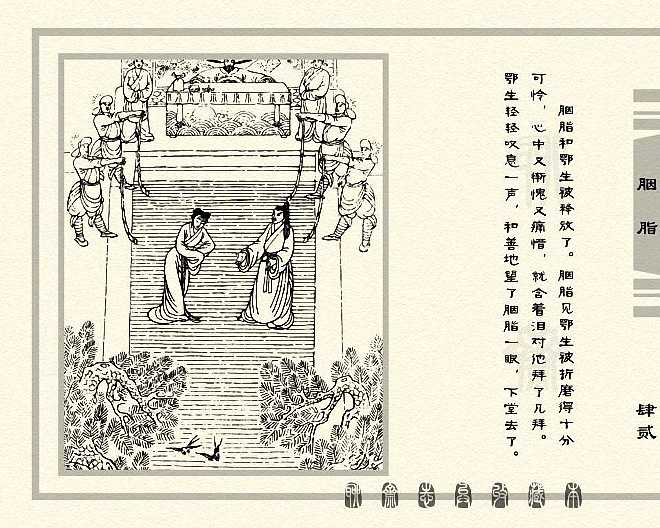 胭脂和鄂生被释放了。胭脂见鄂生被折磨得十分
可怜，心中又惭愧又痛惜，就含着泪对他拜了几拜。
鄂生轻轻叹息一声，和善地望了胭脂一眼，下堂去了。
胭脂
肆贰
聊斋志异收藏本